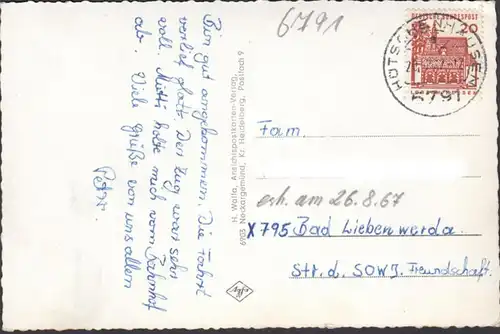 6791
Bin gut angekommen. Die Fahrt
verlief glatt. Der Zug war sehr
voll. Mutti holte mich vom Bahnhof
ab. Viele Grüße von uns allen
Peter.
H. Walla, Ansichtspostkarten-Verlag,
6903 Neckargemünd, Kr. Heidelberg, Postfach 9
DEUTSCHE BUNDESPOST
20
HÜTSCHENHAUSEN
6791
Fam.
erh. am 26.8.67
X795 Bad Liebenwerda
Str. d. SOWJ. Freundschaft
Agfa